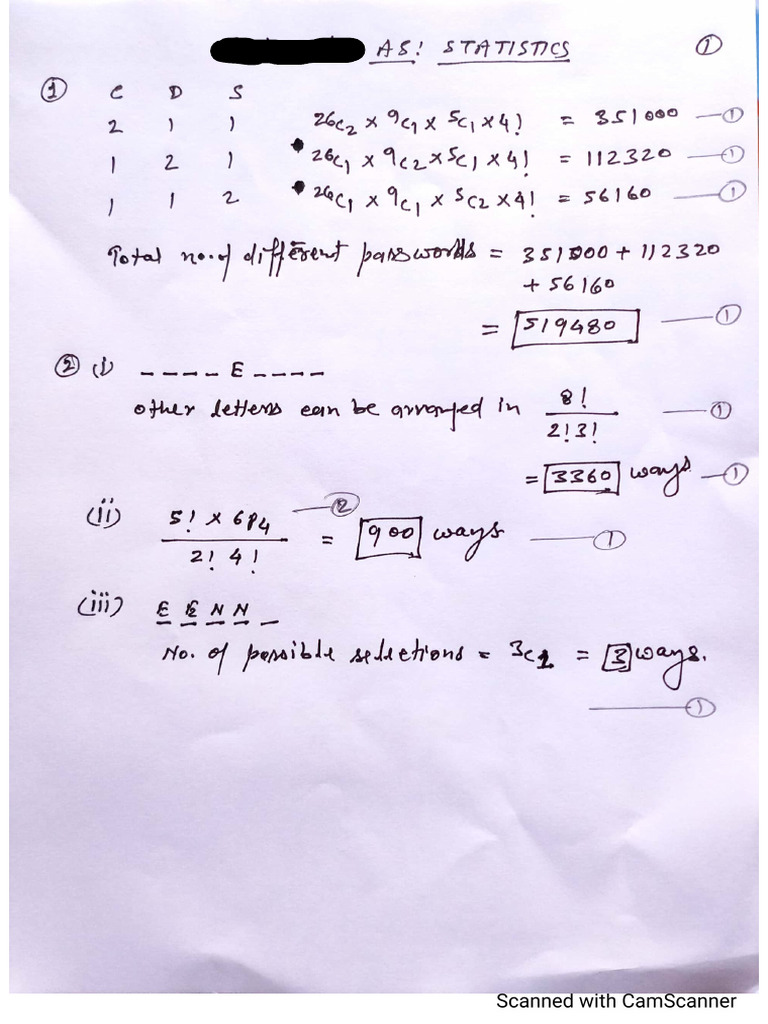 AS! STATISTICS ①
① C D S
2 1 1 26C2 x 9C1 x 5C1 x 4! = 351000 — ①
1 2 1 26C1 x 9C2 x 5C1 x 4! = 112320 — ①
1 1 2 26C1 x 9C1 x 5C2 x 4! = 56160 — ①
Total no. of different passwords = 351000 + 112320
+ 56160
= 519480 — ①
② (i) - - - - E - - - -
other letters can be arranged in 8! / 2! 3! — ①
= 3360 ways — ①
(ii) 5! x 6P4 / 2! 4! — ② = 900 ways — ①
(iii) E E N N _
No. of possible selections = 3C1 = 3 ways.
— ①
Scanned with CamScanner